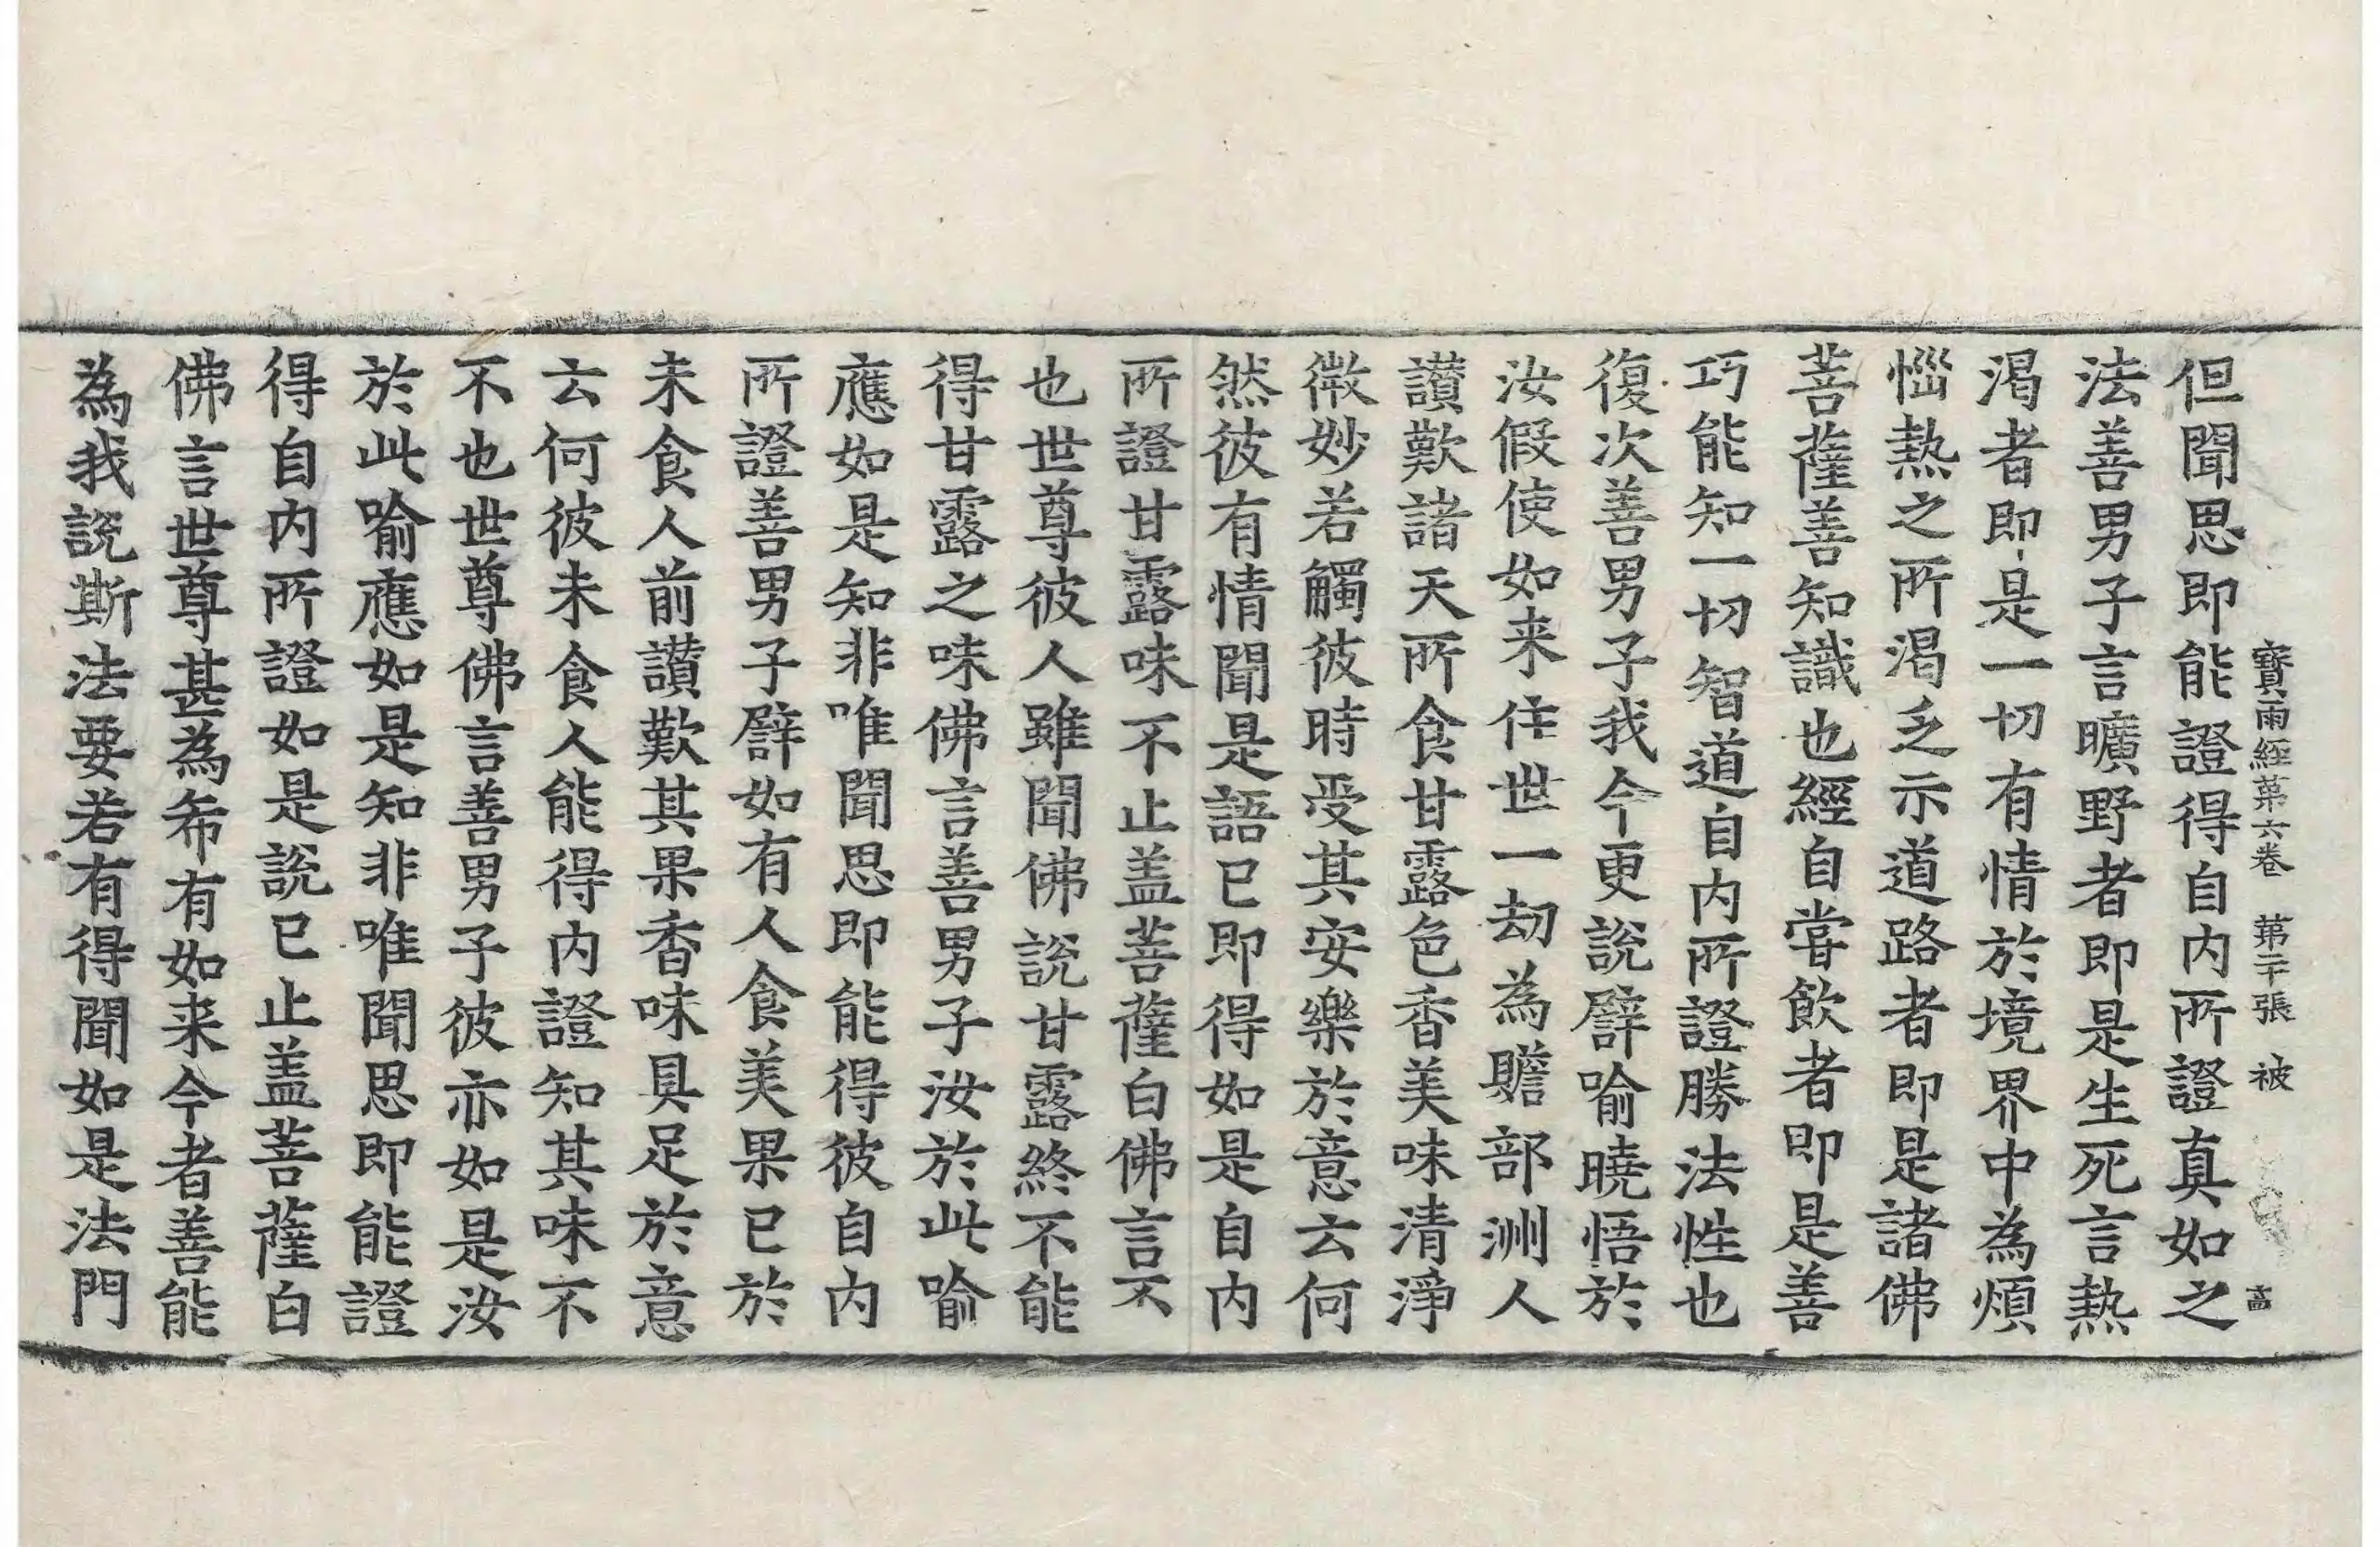 寶雨經第六卷　第二十張　被
但聞思即能證得自内所證真如之
法善男子言曠野者即是生死言熱
渴者即是一切有情於境界中為煩
惱熱之所渴乏示道路者即是諸佛
菩薩善知識也經自甞飲者即是善
巧能知一切智道自内所證勝法性也
復次善男子我今更說譬喻曉悟於
汝假使如来住世一劫為贍部洲人
讃歎諸天所食甘露色香美味清淨
微妙若觸彼時受其安樂於意云何
然彼有情聞是語已即得如是自内
所證甘露味不止盖菩薩白佛言不
也世尊彼人雖聞佛說甘露終不能
得甘露之味佛言善男子汝於此喻
應如是知非唯聞思即能得彼自内
所證善男子譬如有人食美果已於
未食人前讃歎其果香味具足於意
云何彼未食人能得内證知其味不
不也世尊佛言善男子彼亦如是汝
於此喻應如是知非唯聞思即能證
得自内所證如是說已止盖菩薩白
佛言世尊甚為希有如来今者善能
為我說斯法要若有得聞如是法門